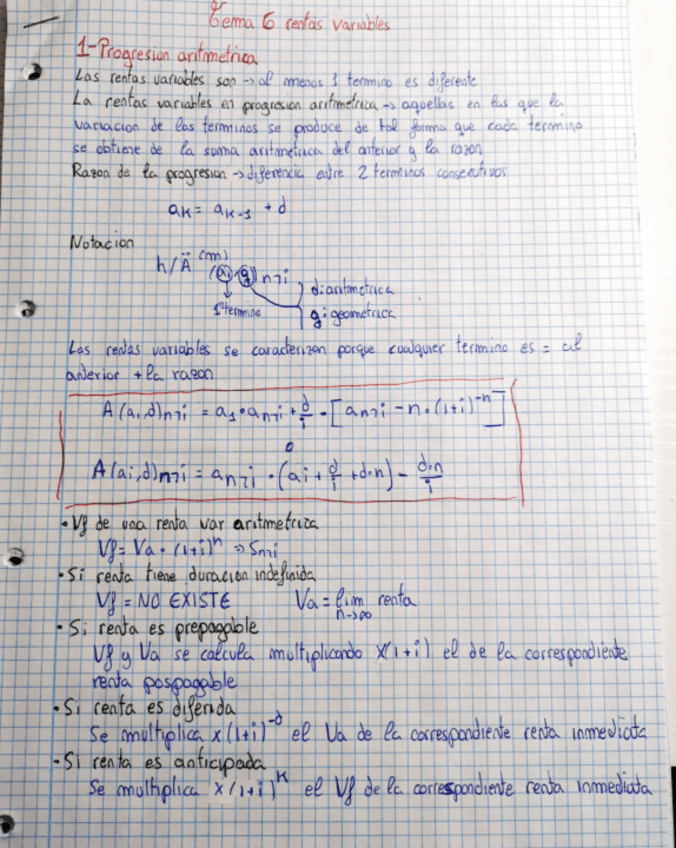 Tema 6 rentas variables
1-Progresion aritmetrica
Las rentas variables son → al menos 1 termino es diferente
La rentas variables en progresion aritmetrica → aquellas en las que la
variacion de los terminos se produce de tal forma que cada termino
se obtiene de la suma aritmetrica del anterior y la razon
Razon de la progresion → diferencia entre 2 terminos consecutivos
aK = aK-1 + d
Notacion
h/Ä (m) (a1, q) n¬i
1º termino
d: aritmetrica
g: geometrica
Las rentas variables se caracterizan porque cualquier termino es = al
anterior + la razon
A(ai,d)n¬i = a1 · an¬i + d/i · [an¬i - n · (1+i)^-n]
o
A(ai,d)n¬i = an¬i · (ai + d/i + d·n) - d·n/i
• Vf de una renta var aritmetrica
Vf = Va · (1+i)^n ⇒ Sn¬i
• Si renta tiene duracion indefinida
Vf = NO EXISTE Va = lim n→∞ renta
• Si renta es prepagable
Vf y Va se calcula multiplicando x(1+i) el de la correspondiente
renta pospagable
• Si renta es diferida
Se multiplica x(1+i)^-d el Va de la correspondiente renta inmediata
• Si renta es anticipada
Se multiplica x(1+i)^K el Vf de la correspondiente renta inmediata